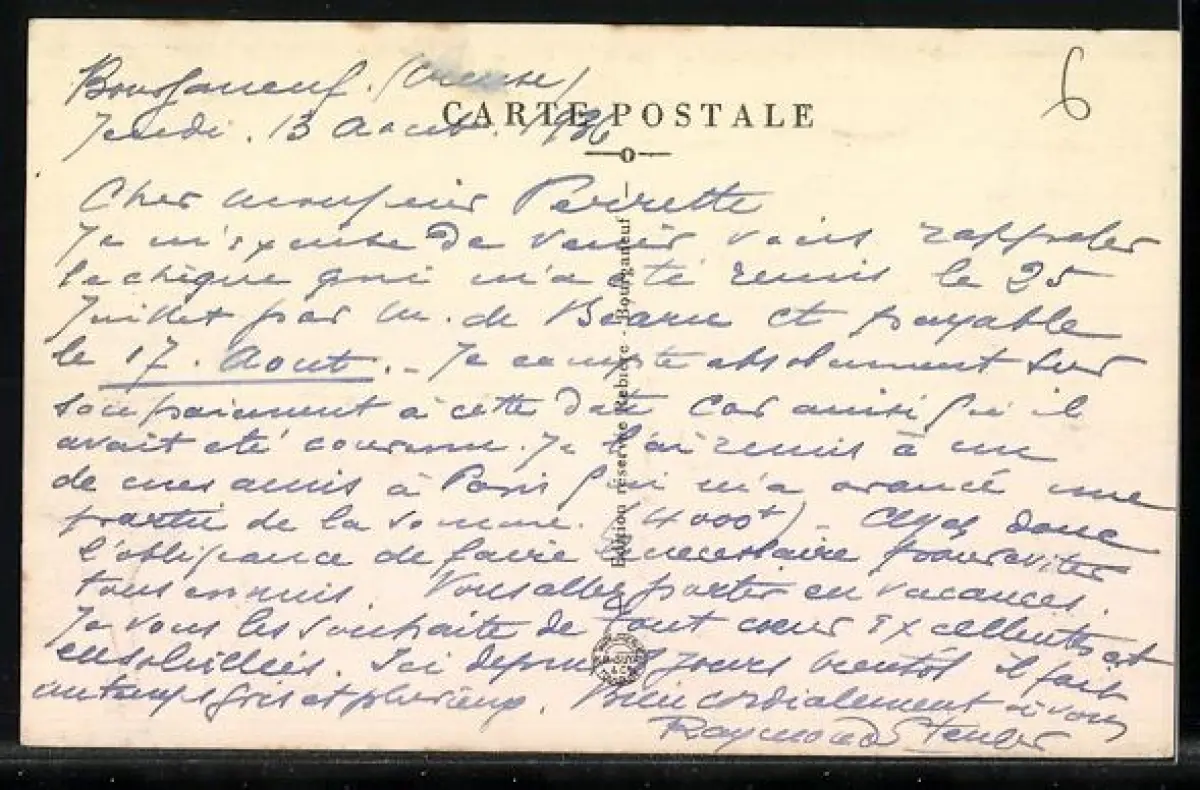 Bourganeuf. (Creuse)
Jeudi. 13 Aout. 1936
6
CARTE POSTALE
Cher Monsieur Perrette
Je m'excuse de venir vous rappeler
le chèque qui m'a été remis le 25
Juillet par M. de Bearn et payable
le 17. Aout. - Je compte absolument sur
son paiement à cette date car ainsi qu'il
avait été convenu. Je l'ai remis à un
de mes amis à Paris qui m'a avancé une
partie de la somme. (4000+) - Ayez donc
l'obligeance de faire le necessaire pour eviter
tous ennuis. Vous allez partir en vacances.
Je vous les souhaite de tout coeur excellentes et
ensoleillées. Ici depuis 8 jours bientôt il fait
un temps gris et pluvieux. Bien cordialement à vous
Raymond
Edition réservée Rebière - Bourganeuf